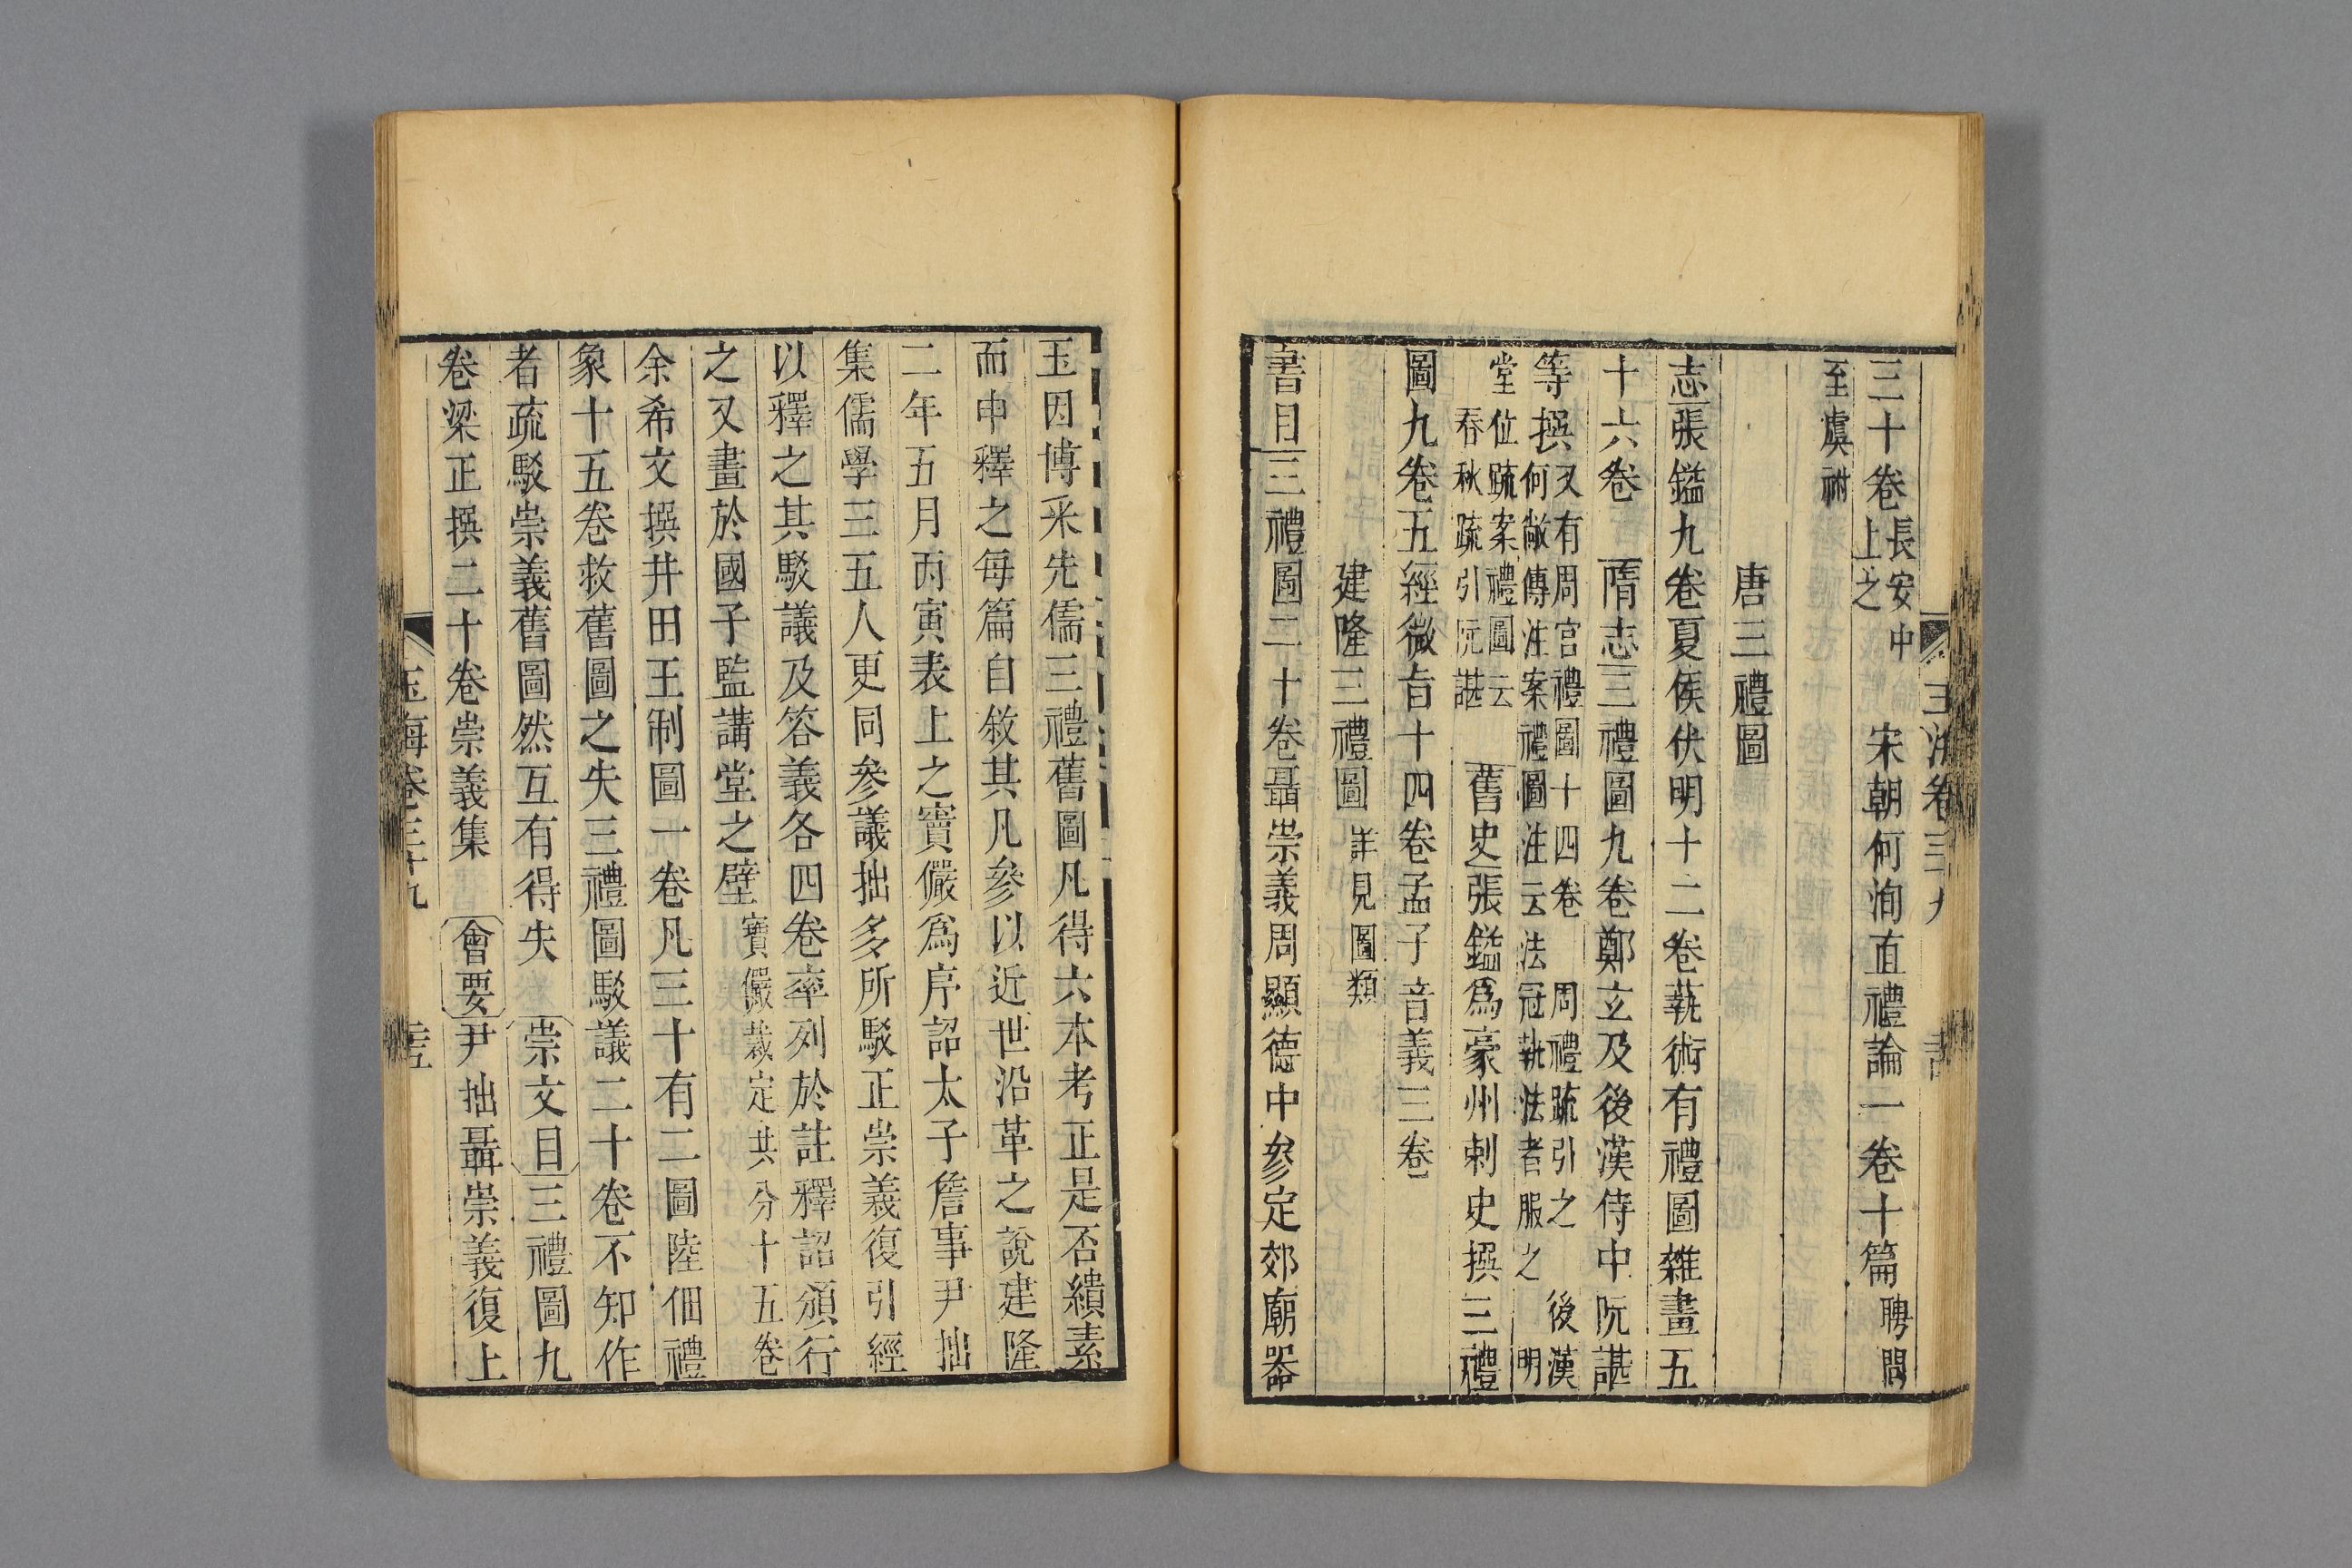 三十卷長安中上之　宋朝何洵直禮論一卷十篇聘問
至虞祔
唐三禮圖
志張鎰九卷夏侯伏明十二卷蓺術有禮圖雜畫五
十六卷　隋志三禮圖九卷鄭玄及後漢侍中阮諶
等撰又有周官禮圖十四卷　周禮疏引之　後漢
何敞傳注案禮圖注云法冠執法者服之　明
堂位疏案禮圖云
春秋疏引阮諶　舊史張鎰爲豪州刺史撰三禮
圖九卷五經微旨十四卷孟子音義三卷
建隆三禮圖詳見圖類
書目三禮圖二十卷聶崇義周顯德中參定郊廟器
玉因博采先儒三禮舊圖凡得六本考正是否繢素
而申釋之每篇自敘其凡參以近世沿革之說建隆
二年五月丙寅表上之竇儼爲序詔太子詹事尹拙
集儒學三五人更同參議拙多所駁正崇義復引經
以釋之其駁議及答義各四卷率列於註釋詔頒行
之又畫於國子監講堂之壁竇儼裁定共分十五卷
余希文撰井田王制圖一卷凡三十有二圖陸佃禮
象十五卷救舊圖之失三禮圖駁議二十卷不知作
者疏駁崇義舊圖然互有得失　崇文目三禮圖九
卷梁正撰二十卷崇義集　會要尹拙聶崇義復上
玉海卷三十九